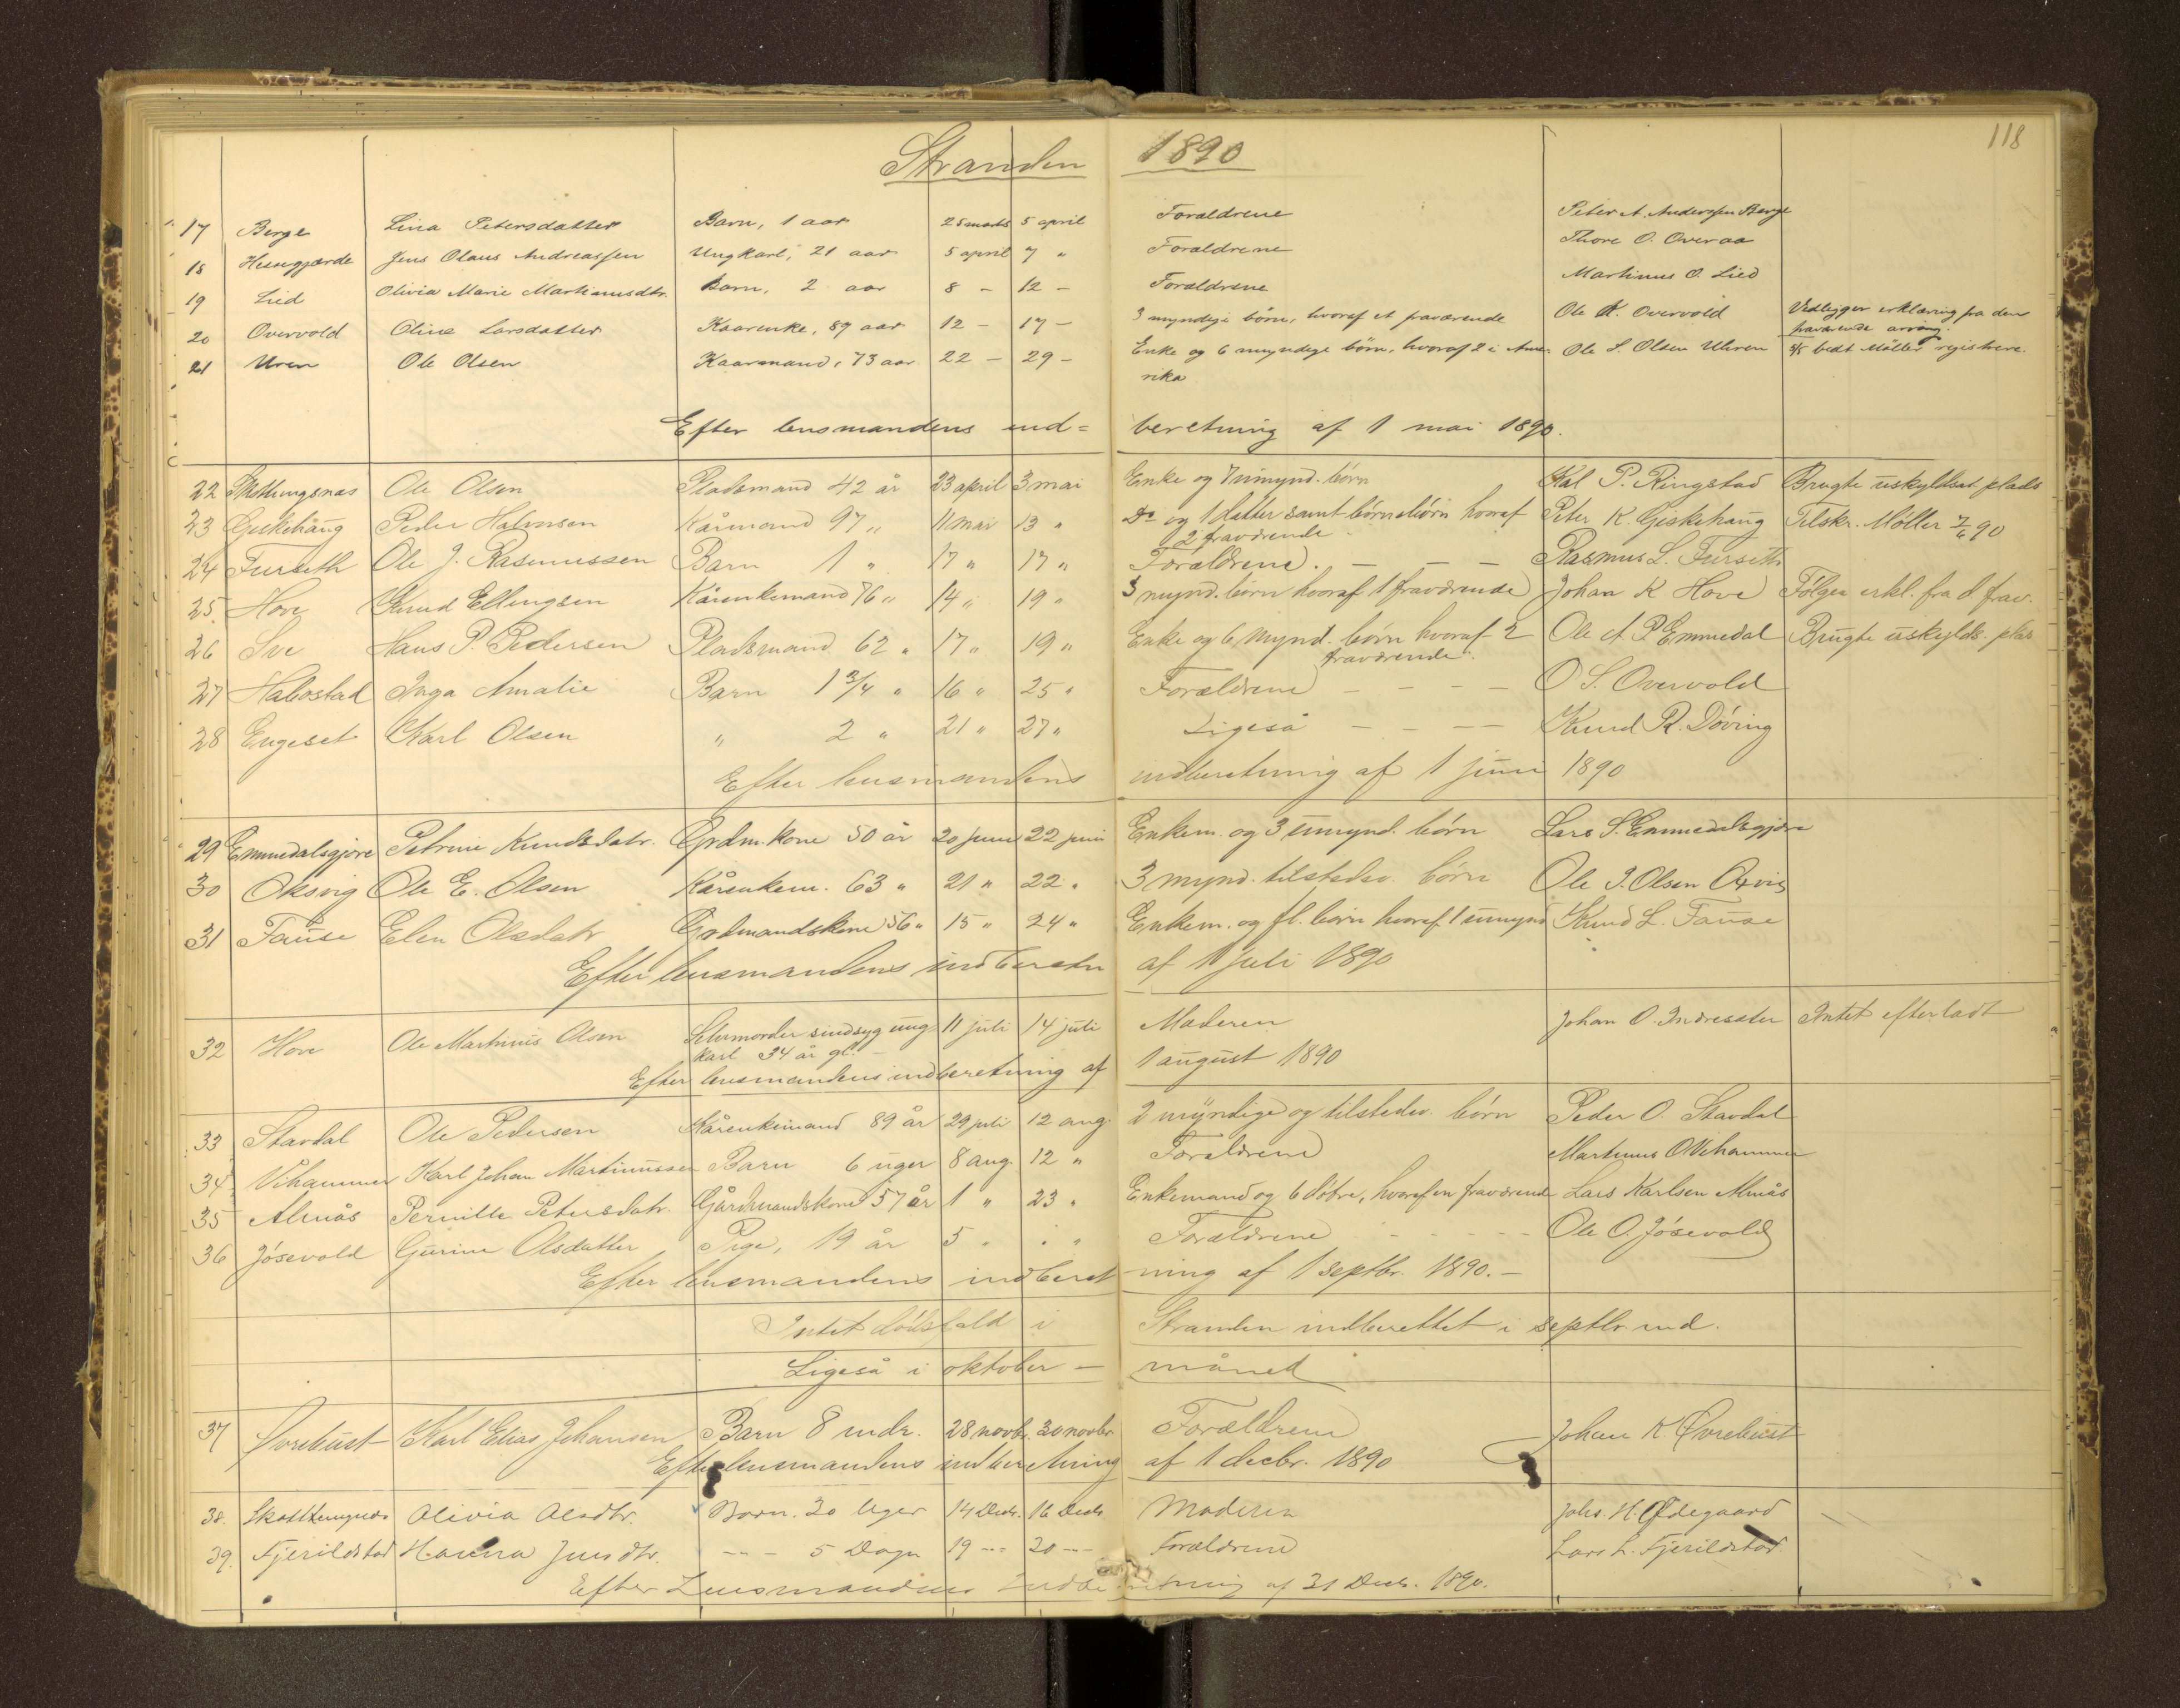 118
Stranden 1890
17 Berge Lina Petersdatter Barn, 1 aar 25 marts 5 april Forældrene Peter A. Anderssen Berge
18 Hessegjærde Jens Olaus Andreassen Ungkarl, 21 aar 5 april 7 " Forældrene Thore O. Overaa
19 Lied Olivia Marie Martinusdtr. Barn, 2 aar 8 - 12 - Forældrene Martinus O. Lied
20 Overvold Oline Larsdatter Kaarenke, 89 aar 12 - 17 - 3 myndige børn, hvoraf et fraværende Ole K. Overvold Vedligger erklæring fra den
fraværende arving.
21 Uren Ole Olsen Kaarmand, 73 aar 22 - 29 - Enke og 6 myndige børn, hvoraf 2 i Ame- Ole L. Olsen Uhren 2/5 bedt Møller registrere.
rika
Efter lensmandens ind= beretning af 1 mai 1890.
22 Ole Olsen Pladsmand 42 år 23 april 3 mai Enke og 7 umynd. børn Kal P. Ringstad Brugte uskyldsat plads
23 Giskehaug Peder Halvorsen Kårmand 97 " 11 mai 13 " Do og 1 datter samt børnebørn hvoraf Peter K. Giskehaug Tilskr. Møller 7/6 90
2 fraværende
24 Furseth Ole J. Rasmussen Barn 1 " 17 " 17 " Forældrene. - - - Rasmus L. Furseth
25. Hove Knud Ellingsen Kårenkemand 76 " 14 " 19 " 3 mynd. børn hvoraf 1 fraværende Johan K Hove Følger erkl. fra d. frav.
26 Sve Hans P. Pedersen Pladsmand 62 " 17 " 19 " Enke og 6 mynd. børn hvoraf 2 Ole A P Emmedal Brugte uskylds. plas
fraværende.
27 Habostad Inga Amalie Barn 1 3/4 " 16 " 25 " Forældrene - - - - O S. Overvold
28 Engeset Karl Olsen " 2 " 21 " 27 " Ligeså - - - Knud R. Døving
Efter lensmandens indberetning af 1 juni 1890
29 Emmedalsgjøre Petrine Knudsdatr. Grdm.kone 50 år 20 juni 22 juni Enkem. og 3 umynd. børn Lars P. Emmedalsgjøre
30 Oksvig Ole E. Olsen Kårenkem. 63 " 21 " 22 " 3 mynd. tilstedev. børn Ole J. Olsen Oxvig
31 Fause Elen Olsdatr Grdmandskone 56 " 15 " 24 " Enkem. og fl. børn hvoraf 1 umynd Knud L. Fause
Efter lensmandens indberetn af 1 juli 1890
32 Hove Ole Martinus Olsen Selvmorder sindsyg ung- 11 juli 14 juli Moderen Johan O. Indresæter Intet efterladt
karl 34 år gl. -
Efter lensmandens indberetning af 1 august 1890
33 Stavdal Ole Pedersen Kårenkemand 89 år 29 juli 12 aug. 2 myndige og tilstedev. børn Peder O. Stavdal
34. Vihammer Karl Johan Martinussen Barn 6 uger 8 aug. 12 " Forældrene Martinus O Vihammer
35 Almås Pernille Petersdatr. Gårdmandskone 57 år 1 " 23 " Enkemand og 6 døtre, hvoraf en fraværende Lars Karlsen Almås
36 Jøsevold Gurine Olsdatter Pige, 19 år 5 " " " Forældrene - - - - - Ole O. Jøsevold
Efter lensmandens indberet- ning af 1 septbr. 1890. -
Intet dødsfald i Stranden indberettet i septbr. md.
Ligeså i oktober - måned
37 Øvrebust Karl Elias Johansen Barn 8 mdr. 28 novbr. 30 novbr. Forældrene Johan K. Øvrebust
Efter lensmandens indberetning af 1 decbr. 1890
38. Olivia Olsdtr. Barn. 30 Uger 14 Decbr. 16 Decbr Moderen Johs. H. Ødegaard
39. Fjerildstad Hanna Jensdtr. --- 5 Dage 19 --- 20 --- Forældrene Lars L. Fjerildstad.
Efter Lensmandens Indberetning af 31 Decb. 1890.